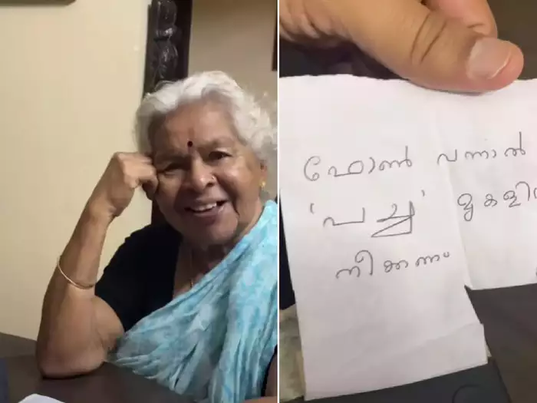 ഫോൺ വന്നാൽ
'പച്ച'
നീക്കണം